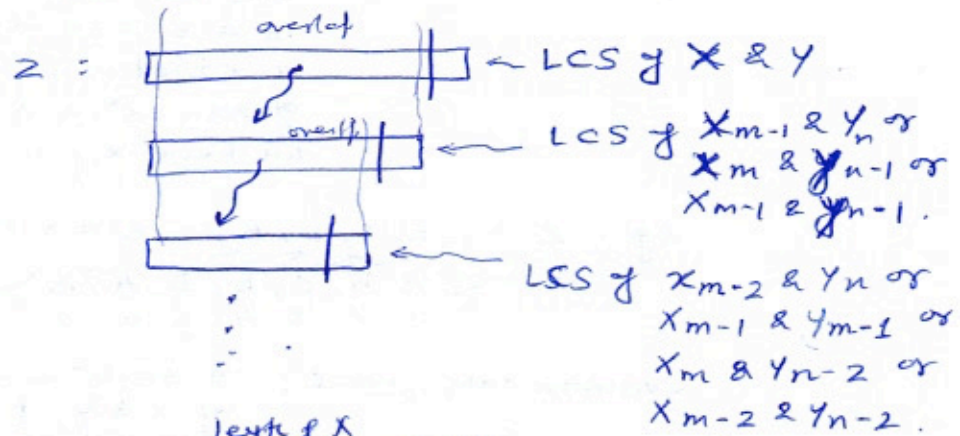 overlap
Z :
← LCS of X & Y.
overlap
← LCS of Xm-1 & Yn or
Xm & Yn-1 or
Xm-1 & Yn-1.
← LCS of Xm-2 & Yn or
Xm-1 & Ym-1 or
Xm & Yn-2 or
Xm-2 & Yn-2.
X